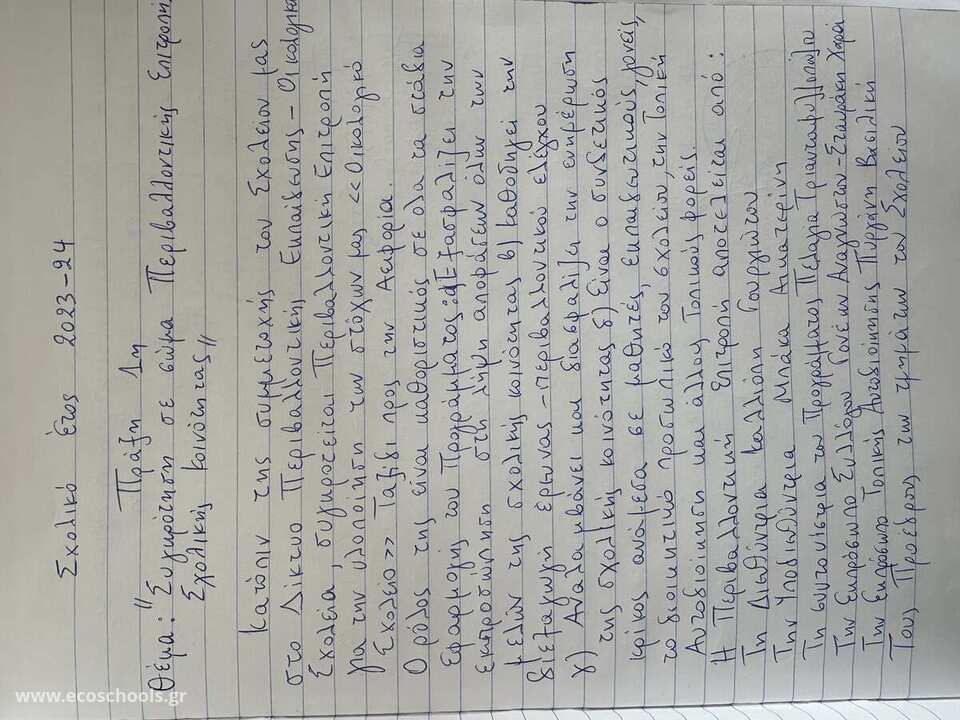 Σχολικό Έτος 2023-24
Πράξη 1η
Θέμα: "Συγκρότηση σε σώμα Περιβαλλοντικής Επιτροπής
Σχολικής Κοινότητας"
Κατόπιν της συμμετοχής του Σχολείου μας
στο Δίκτυο Περιβαλλοντικής Εκπαίδευσης - Οικολογικά
Σχολεία, συγκροτείται Περιβαλλοντική Επιτροπή
για την υλοποίηση των στόχων μας <<Οικολογικό
Σχολείο>> Ταξίδι προς την Αειφορία.
Ο ρόλος της είναι καθοριστικός σε όλα τα στάδια
Εφαρμογής του Προγράμματος: α) Εξασφαλίζει την
εκπροσώπηση στη λήψη αποφάσεων όλων των
μελών της σχολικής κοινότητας β) καθοδηγεί την
διεξαγωγή έρευνας - περιβαλλοντικού ελέγχου
γ) Αναλαμβάνει και διασφαλίζει την ενημέρωση
της σχολική κοινότητας δ) Είναι ο συνδετικός
κρίκος ανάμεσα σε μαθητές, εκπαιδευτικούς, γονείς,
το διοικητικό προσωπικό του σχολείου, την Τοπική
Αυτοδιοίκηση και άλλους Τοπικούς φορείς.
Η Περιβαλλοντική Επιτροπή αποτελείται από:
Τη Διευθύντρια Καλλιόπη Γουργιώτου
Την Υποδιευθύντρια Μπάκα Αικατερίνη
Τη συντονίστρια του Προγράμματος Πελαγία Τριανταφυλλοπούλου
Την Εκπρόσωπο Συλλόγου Γονέων Αναγνώστου - Σταυράκη Χαρά
Την Εκπρόσωπο Τοπικής Αυτοδιοίκησης Πυργάκη Βασιλική
Τους Προέδρους των τμημάτων του Σχολείου
www.ecoschools.gr